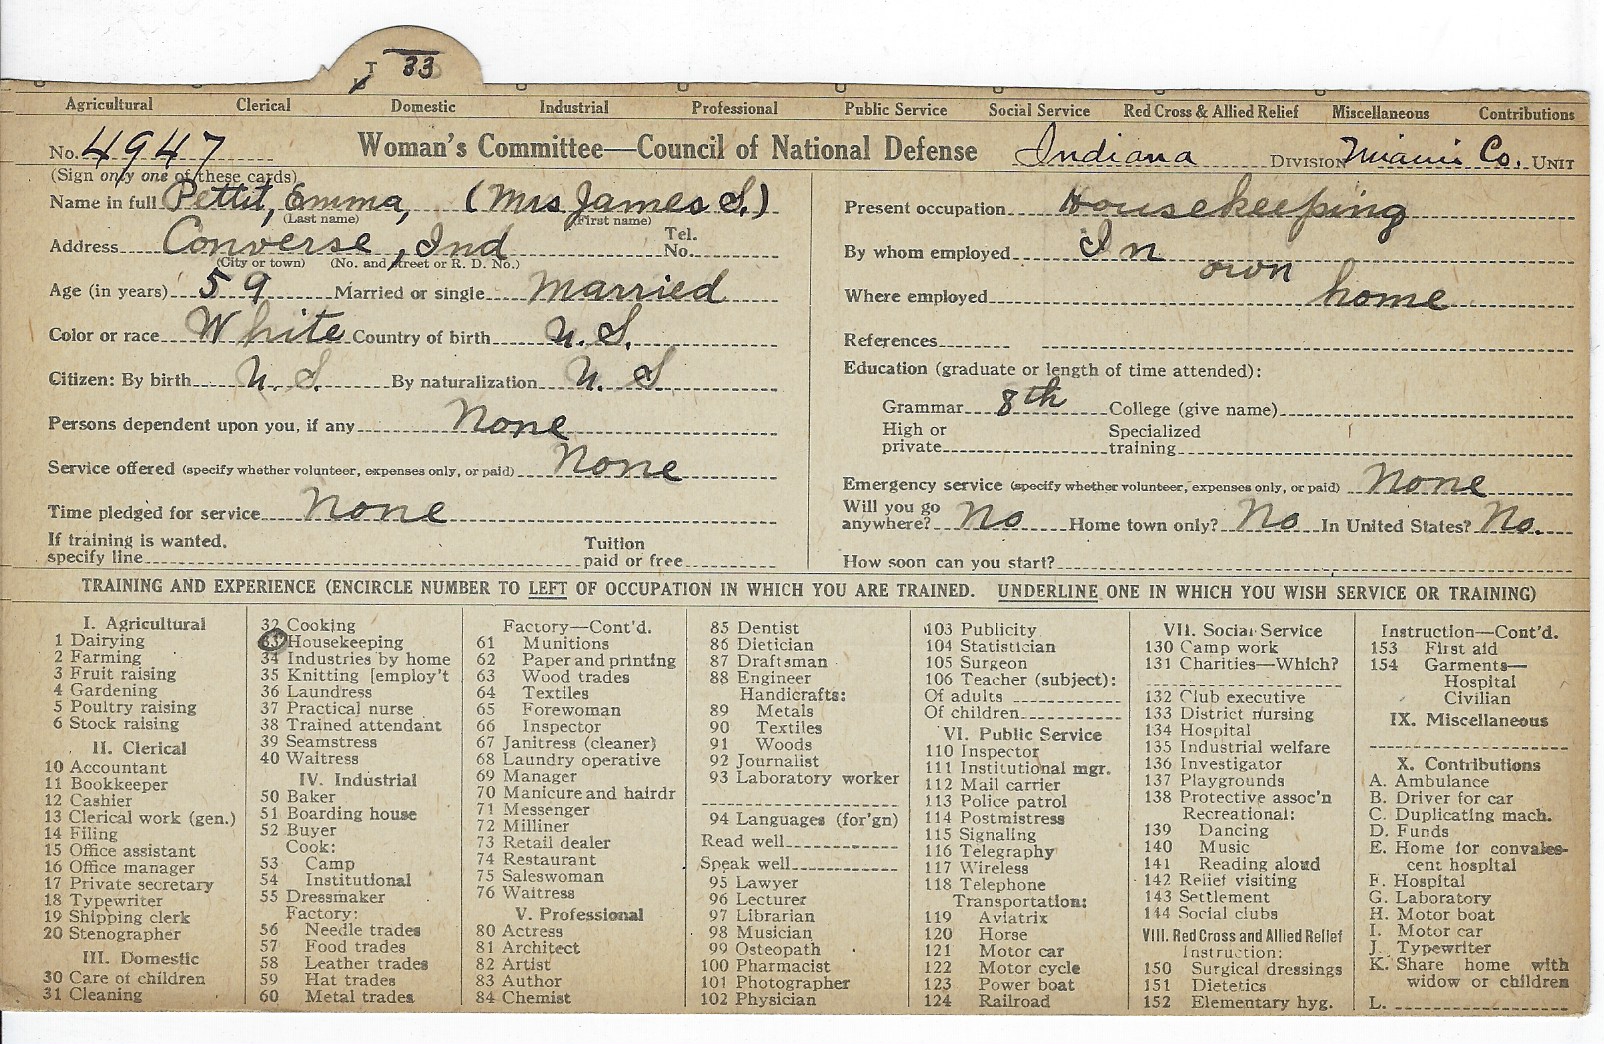 T 33
Agricultural Clerical Domestic Industrial Professional Public Service Social Service Red Cross & Allied Relief Miscellaneous Contributions
No. 4947 Woman's Committee—Council of National Defense Indiana DIVISION Miami Co. UNIT
(Sign only one of these cards)
Name in full Pettit, Emma, (Mrs James S.)
(Last name) (First name)
Address Converse, Ind Tel. No.
(City or town) (No. and street or R. D. No.)
Age (in years) 59 Married or single Married
Color or race White Country of birth U.S.
Citizen: By birth U.S. By naturalization U.S
Persons dependent upon you, if any None
Service offered (specify whether volunteer, expenses only, or paid) None
Time pledged for service None
If training is wanted, specify line Tuition paid or free
Present occupation Housekeeping
By whom employed In
own
Where employed home
References
Education (graduate or length of time attended):
Grammar 8th College (give name)
High or private Specialized training
Emergency service (specify whether volunteer, expenses only, or paid) None
Will you go anywhere? No Home town only? No In United States? No.
How soon can you start?
TRAINING AND EXPERIENCE (ENCIRCLE NUMBER TO LEFT OF OCCUPATION IN WHICH YOU ARE TRAINED. UNDERLINE ONE IN WHICH YOU WISH SERVICE OR TRAINING)
I. Agricultural
1 Dairying
2 Farming
3 Fruit raising
4 Gardening
5 Poultry raising
6 Stock raising
II. Clerical
10 Accountant
11 Bookkeeper
12 Cashier
13 Clerical work (gen.)
14 Filing
15 Office assistant
16 Office manager
17 Private secretary
18 Typewriter
19 Shipping clerk
20 Stenographer
III. Domestic
30 Care of children
31 Cleaning
32 Cooking
33 Housekeeping
34 Industries by home
35 Knitting [employ't
36 Laundress
37 Practical nurse
38 Trained attendant
39 Seamstress
40 Waitress
IV. Industrial
50 Baker
51 Boarding house
52 Buyer
Cook:
53 Camp
54 Institutional
55 Dressmaker
Factory:
56 Needle trades
57 Food trades
58 Leather trades
59 Hat trades
60 Metal trades
Factory—Cont'd.
61 Munitions
62 Paper and printing
63 Wood trades
64 Textiles
65 Forewoman
66 Inspector
67 Janitress (cleaner)
68 Laundry operative
69 Manager
70 Manicure and hairdr
71 Messenger
72 Milliner
73 Retail dealer
74 Restaurant
75 Saleswoman
76 Waitress
V. Professional
80 Actress
81 Architect
82 Artist
83 Author
84 Chemist
85 Dentist
86 Dietician
87 Draftsman
88 Engineer
Handicrafts:
89 Metals
90 Textiles
91 Woods
92 Journalist
93 Laboratory worker
94 Languages (for'gn)
Read well
Speak well
95 Lawyer
96 Lecturer
97 Librarian
98 Musician
99 Osteopath
100 Pharmacist
101 Photographer
102 Physician
103 Publicity
104 Statistician
105 Surgeon
106 Teacher (subject):
Of adults
Of children
VI. Public Service
110 Inspector
111 Institutional mgr.
112 Mail carrier
113 Police patrol
114 Postmistress
115 Signaling
116 Telegraphy
117 Wireless
118 Telephone
Transportation:
119 Aviatrix
120 Horse
121 Motor car
122 Motor cycle
123 Power boat
124 Railroad
VII. Social Service
130 Camp work
131 Charities—Which?
132 Club executive
133 District nursing
134 Hospital
135 Industrial welfare
136 Investigator
137 Playgrounds
138 Protective assoc'n
Recreational:
139 Dancing
140 Music
141 Reading aloud
142 Relief visiting
143 Settlement
144 Social clubs
VIII. Red Cross and Allied Relief
Instruction:
150 Surgical dressings
151 Dietetics
152 Elementary hyg.
Instruction—Cont'd.
153 First aid
154 Garments—
Hospital
Civilian
IX. Miscellaneous
X. Contributions
A. Ambulance
B. Driver for car
C. Duplicating mach.
D. Funds
E. Home for convales-
cent hospital
F. Hospital
G. Laboratory
H. Motor boat
I. Motor car
J. Typewriter
K. Share home with
widow or children
L.